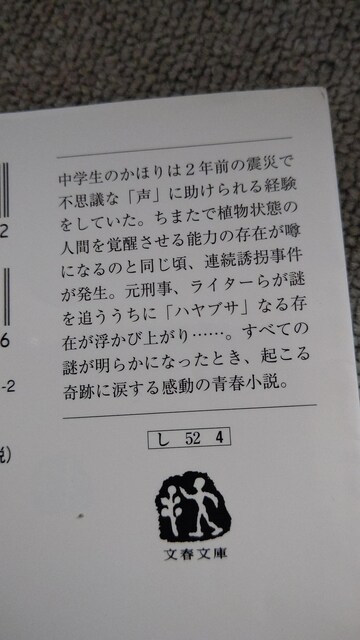 中学生のかほりは2年前の震災で
不思議な「声」に助けられる経験
をしていた。ちまたで植物状態の
人間を覚醒させる能力の存在が噂
になるのと同じ頃、連続誘拐事件
が発生。元刑事、ライターらが謎
を追ううちに「ハヤブサ」なる存
在が浮かび上がり……。すべての
謎が明らかになったとき、起こる
奇跡に涙する感動の青春小説。
し 52 4
文春文庫
2
6
-2
説)